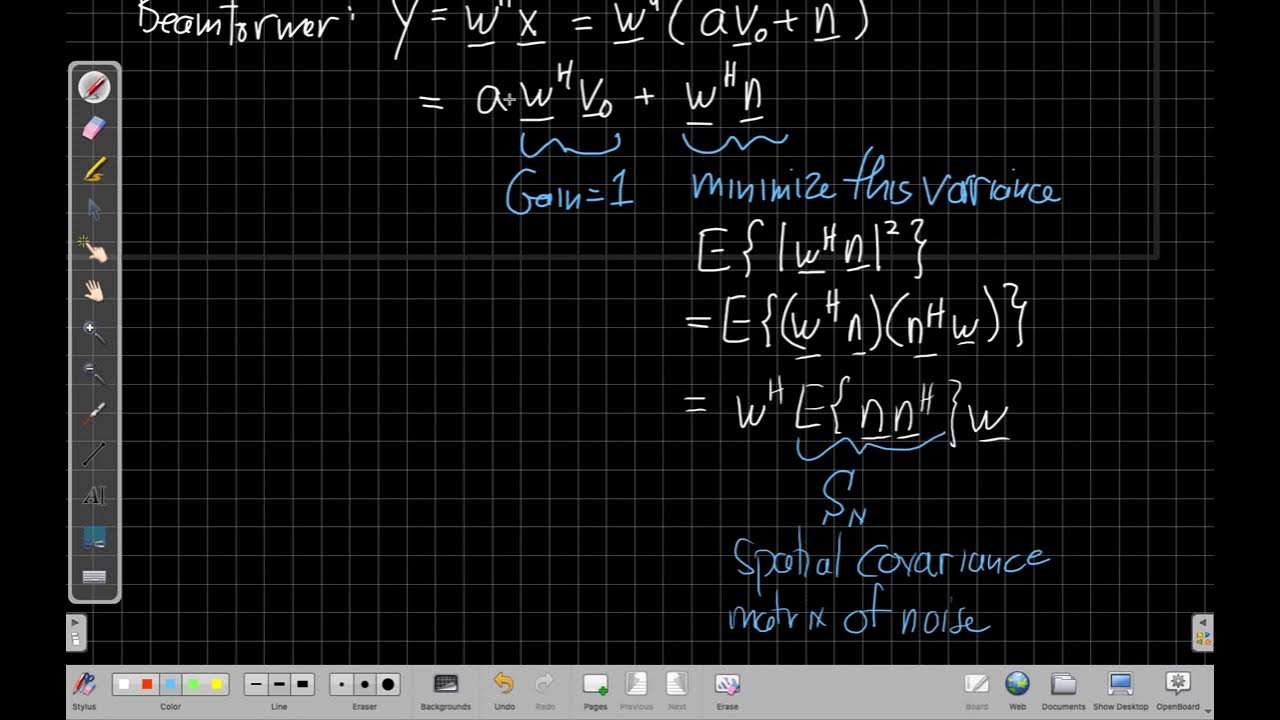 Beamformer: Y = w^H x = w^H ( a v_0 + n )
= a · w^H v_0 + w^H n
Gain = 1 minimize this variance
E{ |w^H n|^2 }
= E{(w^H n)(n^H w)}
= w^H E{ n n^H } w
S_N
Spatial covariance
matrix of noise
AI
Stylus Color Line Eraser Backgrounds Undo Redo Pages Previous Next Erase Board Web Documents Show Desktop OpenBoard